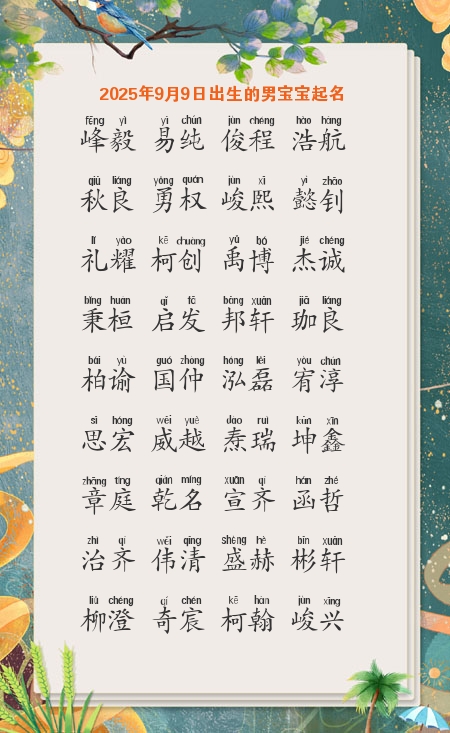 2025年9月9日出生的男宝宝起名
fēng yì yì chún jùn chéng hào háng
峰毅 易纯 俊程 浩航
qiū liáng yǒng quán jùn xī yì zhāo
秋良 勇权 峻熙 懿钊
lǐ yào kē chuàng yǔ bó jié chéng
礼耀 柯创 禹博 杰诚
bǐng huán qǐ fā bāng xuān jiā liáng
秉桓 启发 邦轩 珈良
bǎi yú guó zhòng hóng lěi yòu chún
柏谕 国仲 泓磊 宥淳
sī hóng wēi yuè dào ruì kūn xīn
思宏 威越 焘瑞 坤鑫
zhāng tíng qián míng xuān qí hán zhé
章庭 乾名 宣齐 函哲
zhì qí wěi qīng shèng hè bīn xuān
治齐 伟清 盛赫 彬轩
liǔ chéng qí chén kē hàn jùn xīng
柳澄 奇宸 柯翰 峻兴